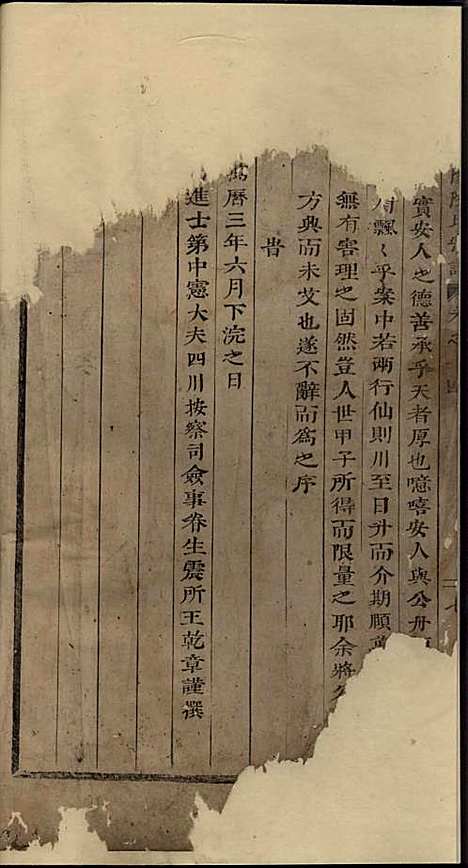 實安人之德善承乎天者厚也噫嘻安人與公毋
飄〻乎案中若兩行仙則川至日升而介期順
無有害理之固然豈人世甲子所得而限量之耶余將
方典而未艾也遂不辭而為之序
旹
萬曆三年六月下浣之日
進士第中憲大夫四川按察司僉事眷生震所王乾章謹撰